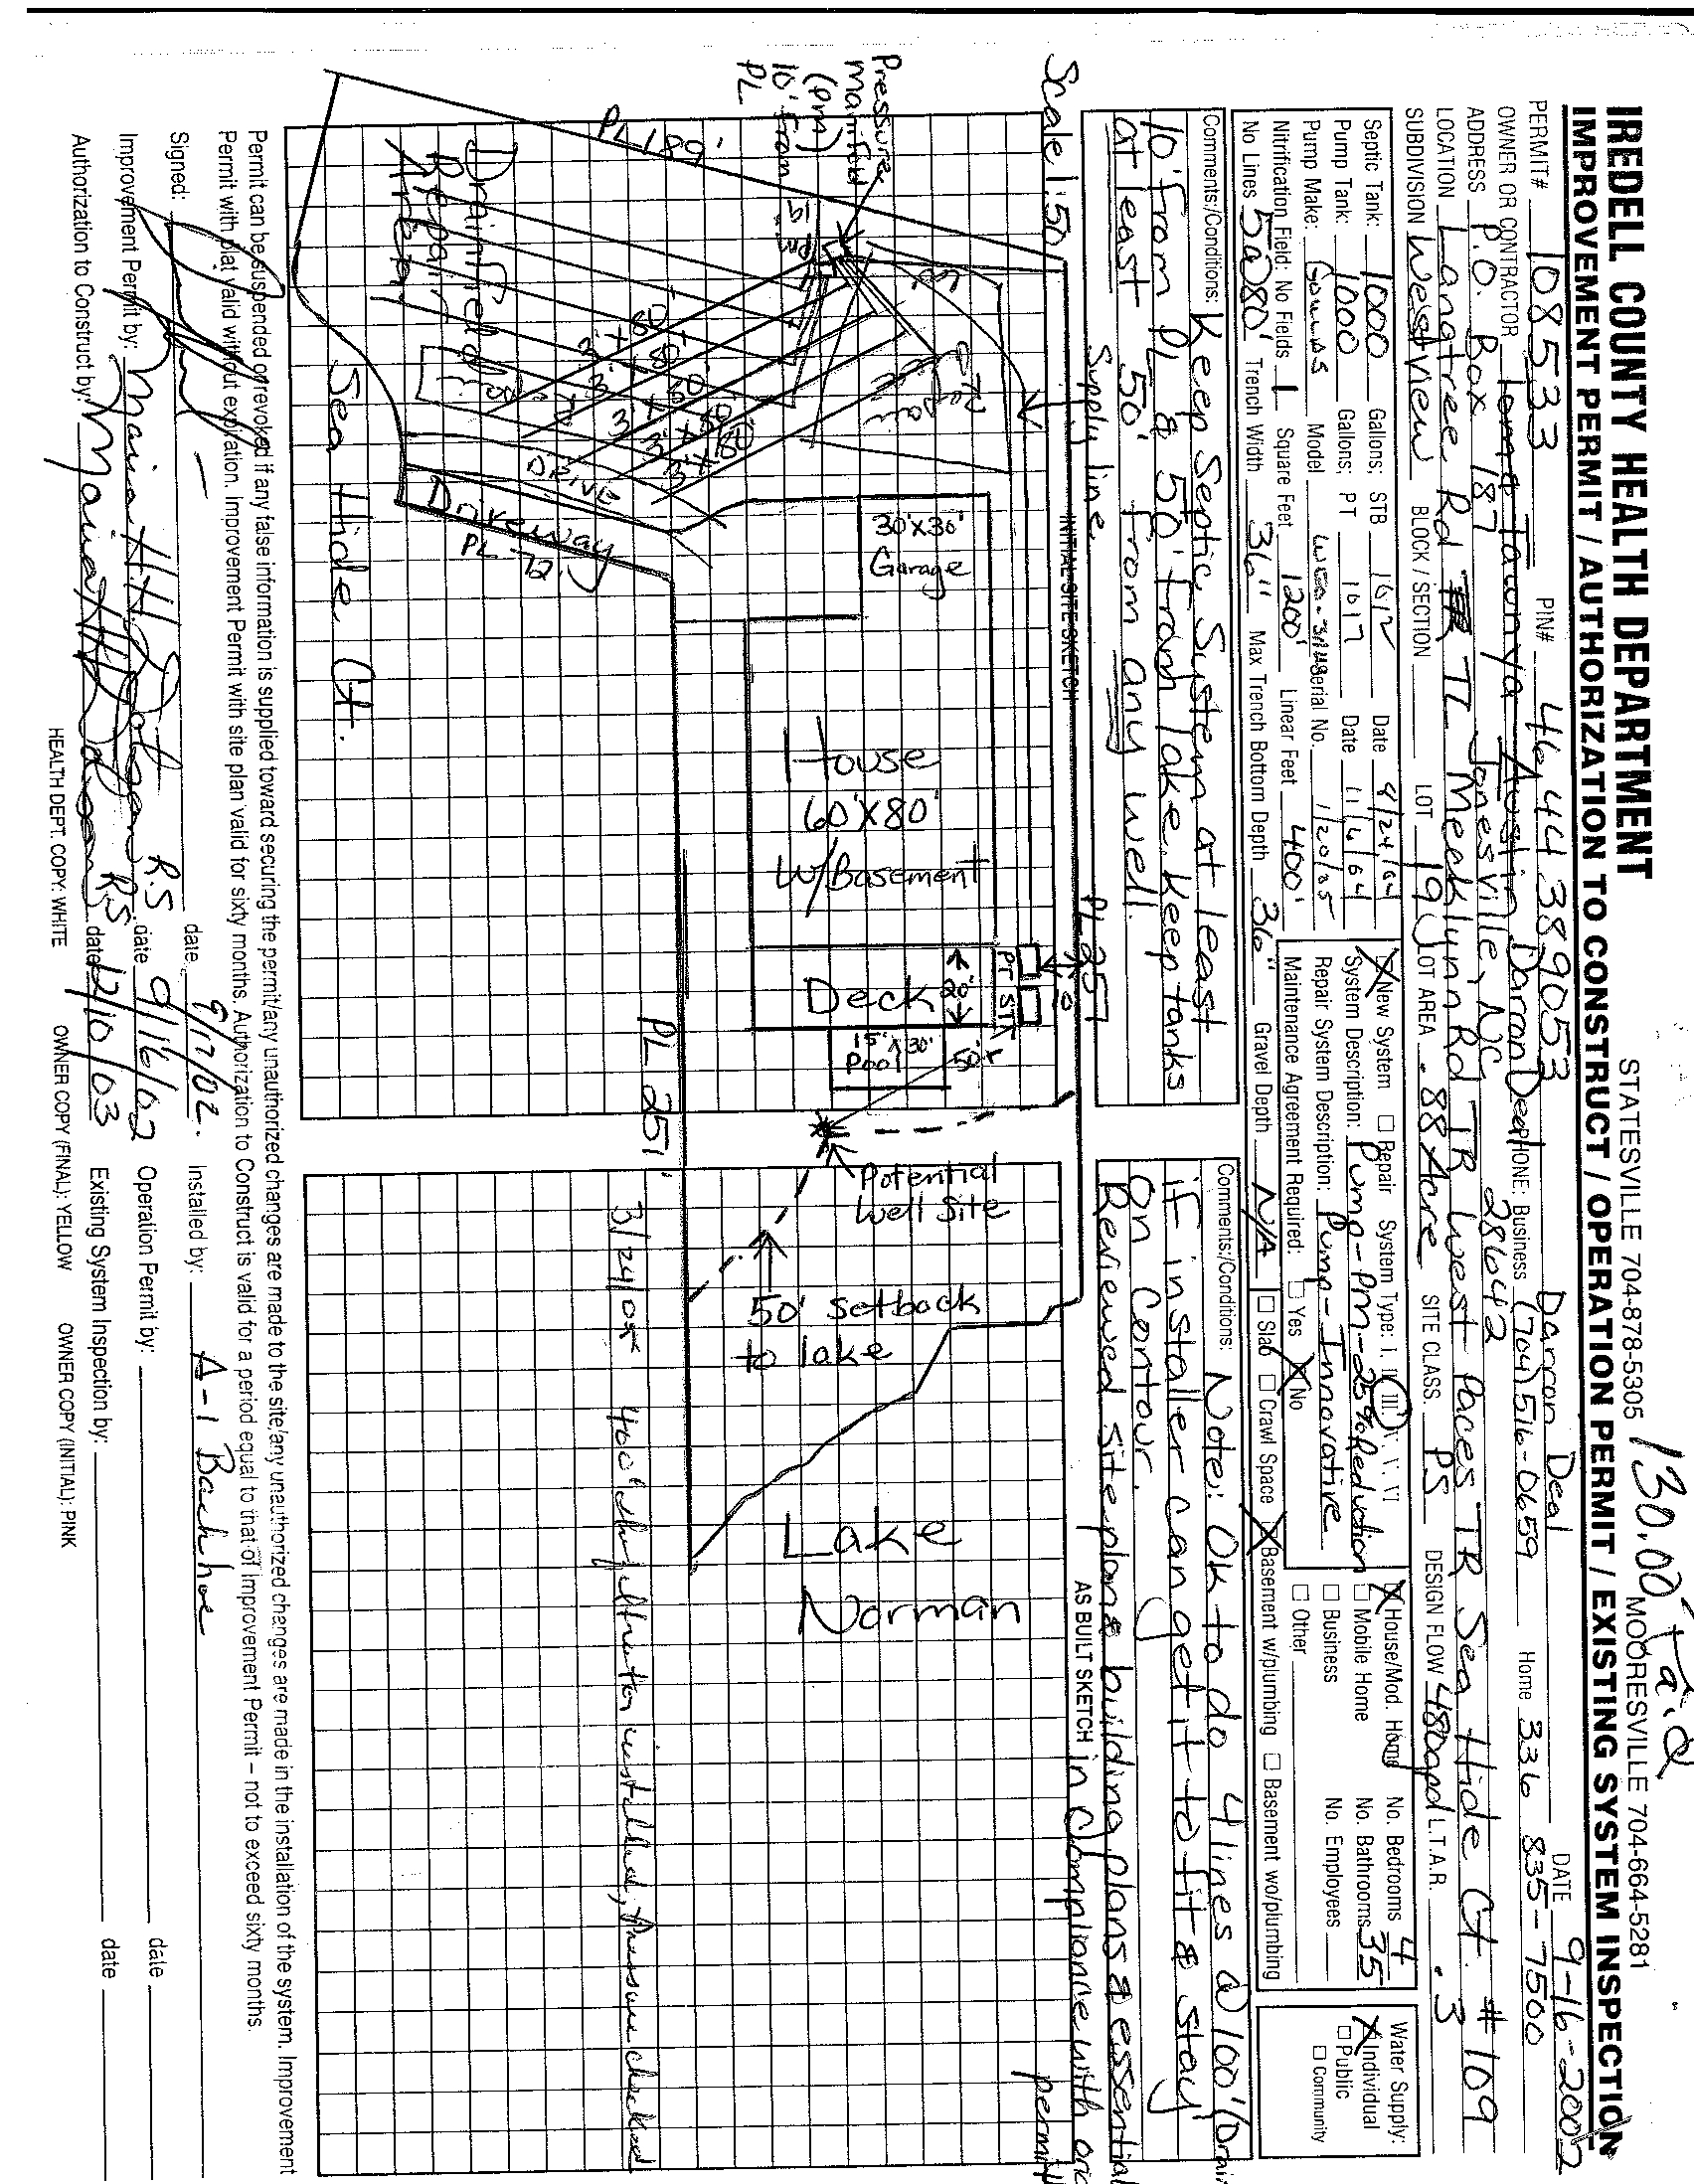 130.00 Paid
IREDELL COUNTY HEALTH DEPARTMENT STATESVILLE 704-878-5305 MOORESVILLE 704-664-5281
IMPROVEMENT PERMIT / AUTHORIZATION TO CONSTRUCT / OPERATION PERMIT / EXISTING SYSTEM INSPECTION
PERMIT# 108533 PIN# 4644389053 Darron Deal DATE 9-16-2002
OWNER OR CONTRACTOR Tawnya Austin Darron Deal PHONE: Business (704) 516-0659 Home 336-835-7500
ADDRESS P.O. Box 187 Jonesville, NC 28642
LOCATION Langtree Rd TL Mecklynn Rd TR West Paces TR Sea Hide Ct. #109
SUBDIVISION Westview BLOCK / SECTION LOT 19 LOT AREA .88 Acre SITE CLASS. PS DESIGN FLOW 480gpd L.T.A.R. .3
Septic Tank: 1000 Gallons: STB 1012 Date 9/24/04
Pump Tank: 1000 Gallons: PT 1017 Date 11/4/04
Pump Make: Goulds Model Serial No. 1/20/05
Nitrification Field: No Fields 1 Square Feet 1200' Linear Feet 400'
No Lines 5@80' Trench Width 36" Max Trench Bottom Depth 36" Gravel Depth N/A
New System Repair System Type: I. II. III. IV. V. VI
System Description: Pump-PM-25% Reduction
Repair System Description: Pump-Innovative
Maintenance Agreement Required: Yes No
Slab Crawl Space Basement w/plumbing Basement wo/plumbing
House/Mod. Home No. Bedrooms 4
Mobile Home No. Bathrooms 3.5
Business No. Employees
Other
Water Supply:
Individual
Public
Community
Comments:/Conditions: Keep Septic System at least
10' from PL & 50' from lake. Keep tanks
at least 50' from any well.
Comments:/Conditions: Note: OK to do 4 lines @ 100' (Drain
if installer can get it to fit & stay
On Contour.
Reviewed site plan & building plans & essential
in Compliance with
permit
Scale 1:50
Supply line
INITIAL SITE SKETCH
PL 257
AS BUILT SKETCH
Pressure
manifold
(PM)
10' from
PL
PL 189'
Drainfield
Repair
Area
3' X 80'
3' X 80'
3' X 80'
3' X 80'
3' X 80'
DRIVE
Driveway
PL 72'
30'X30'
Garage
House
60'X80'
W/Basement
PT
ST
10'
Deck
20'
15' X 30'
Pool
50'
Potential
Well Site
50' setback
to lake
Lake
Norman
Sea Hide Ct.
PL 251'
3/24/05 400' of infiltrator installed, Pressure checked
Permit can be suspended or revoked if any false information is supplied toward securing the permit/any unauthorized changes are made to the site/any unauthorized changes are made in the installation of the system. Improvement
Permit with plat valid without expiration. Improvement Permit with site plan valid for sixty months. Authorization to Construct is valid for a period equal to that of Improvement Permit – not to exceed sixty months.
Signed: date 9/17/02. Installed by: A-1 Backhoe
Improvement Permit by: R.S date 9/16/02 Operation Permit by: date
Authorization to Construct by: RS date 12/10/03 Existing System Inspection by: date
HEALTH DEPT. COPY: WHITE OWNER COPY (FINAL): YELLOW OWNER COPY (INITIAL): PINK